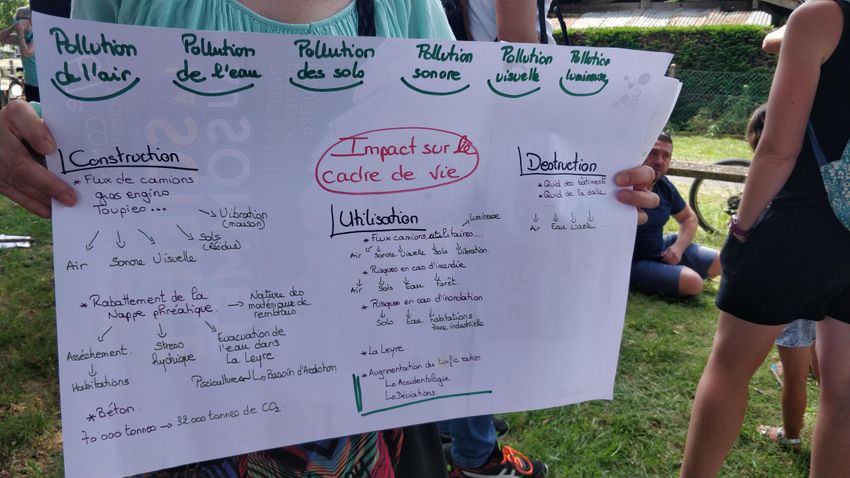 Pollution de l'air
Pollution de l'eau
Pollution des sols
Pollution sonore
Pollution visuelle
Pollution lumineuse
Impact sur le
cadre de vie
Construction
* Flux de camions
gros engins
Toupies ...
Vibration
(maison)
Sols
(Résidus)
Air Sonore Visuelle
* Rabattement de la
Nappe phréatique
Nature des
matériaux de
remblais.
Asséchement.
Stress
hydrique
Evacuation de
l'eau dans
La Leyre
Habitations
Pisciculture Bassin d'Arcachon
* Béton.
70 000 tonnes → 32 000 tonnes de CO2
Utilisation
* Flux camions, utilitaires...
lumineuse
Air Sonore Visuelle Sols Vibration
* Risques en cas d'incendie
Air Sols Eau Forêt
* Risques en cas d'inondation
Sols Eau habitations
zone industrielle
* La Leyre.
* Augmentation du trafic routier
↳ Accidentologie
↳ Déviations
Destruction
* Quid des bâtiments
* Quid de la dalle
...
Air Eau Visuelle ...